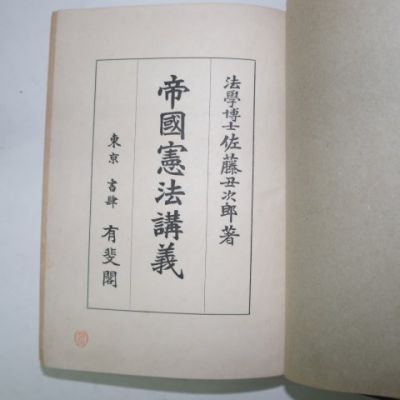 法學博士佐藤丑次郎著
帝國憲法講義
東京 書肆 有斐閣